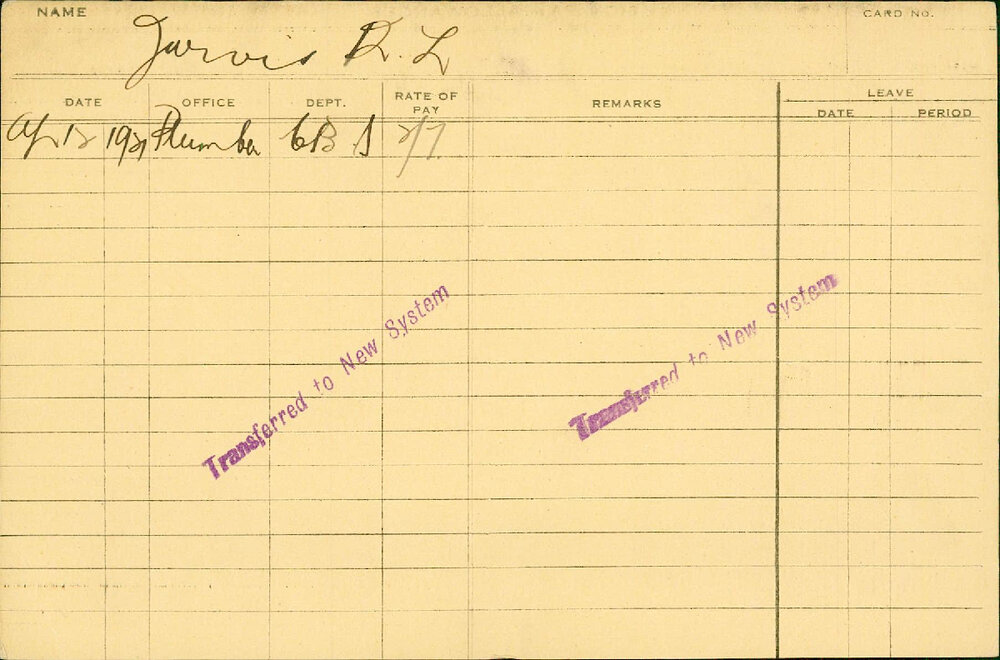 NAME
CARD NO.
Jarvis R. L
DATE
OFFICE
DEPT.
RATE OF PAY
REMARKS
LEAVE
DATE
PERIOD
Ap 12 1921 Plumber CB S 2/7
Transferred to New System
Transferred to New System